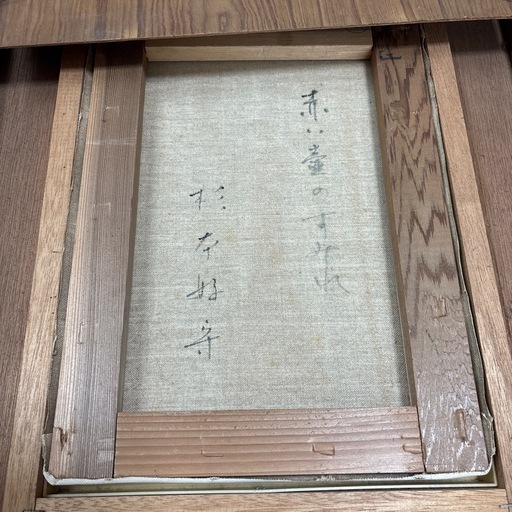 赤い壷のすみれ
杉本好守